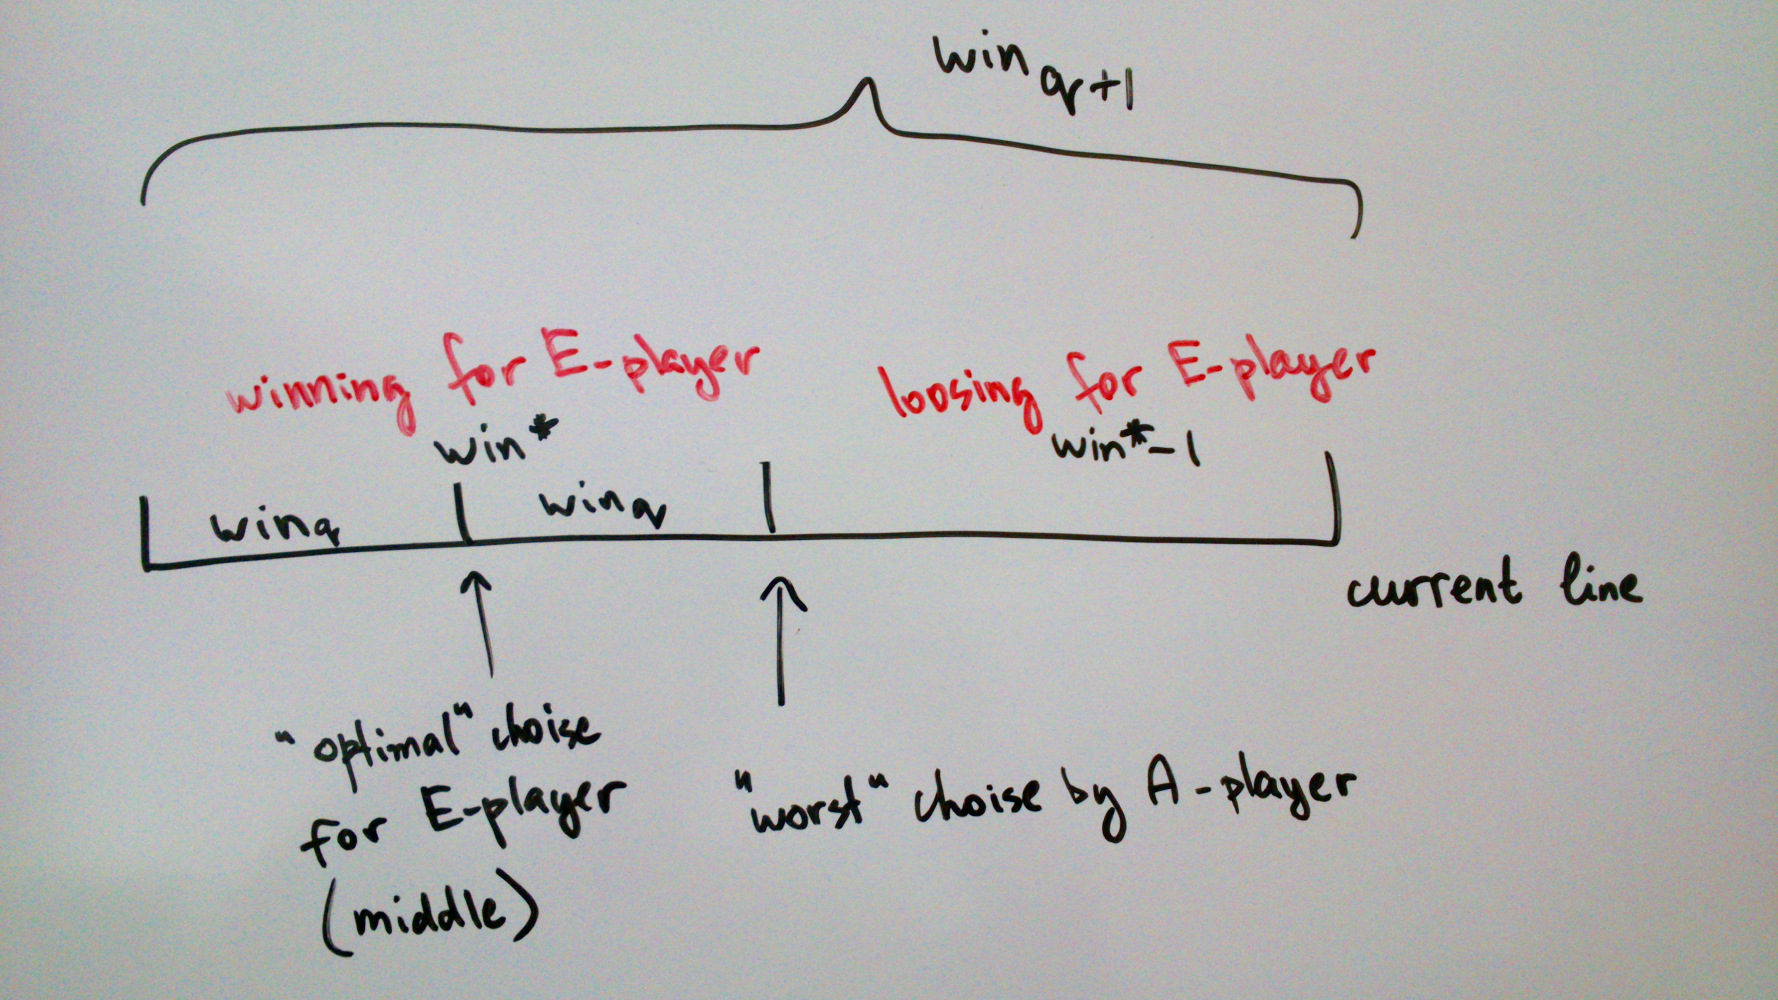 win q+1
winning for E-player
loosing for E-player
win*
win*-1
win q
win q
current line
"optimal" choise
for E-player
(middle)
"worst" choise by A-player